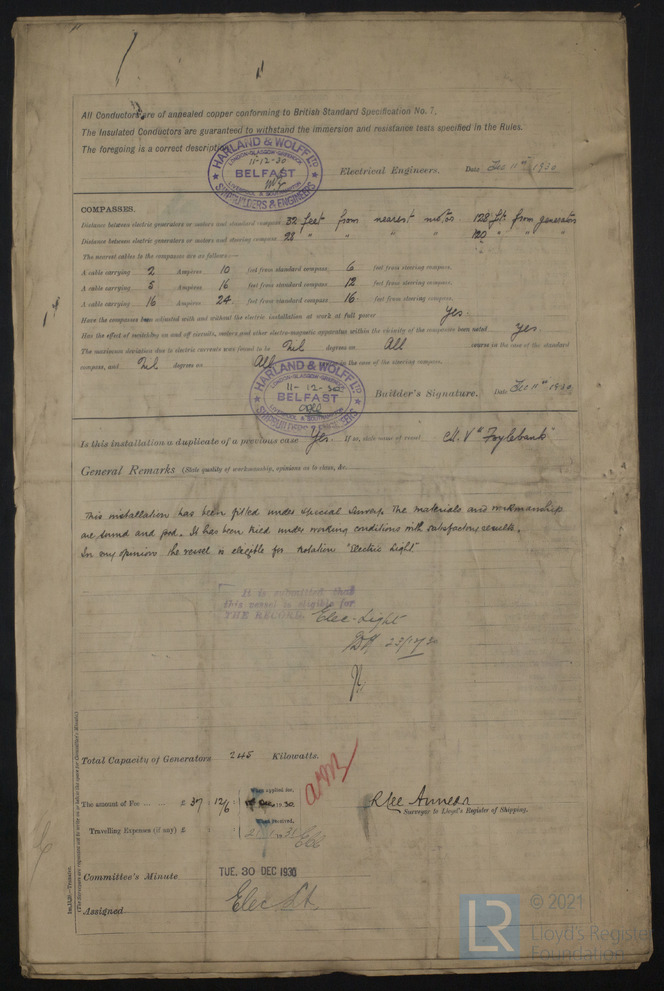 All Conductors are of annealed copper conforming to British Standard Specification No. 7.
The Insulated Conductors are guaranteed to withstand the immersion and resistance tests specified in the Rules.
The foregoing is a correct description
HARLAND & WOLFF LTD
LONDON-GLASGOW-GREENOCK
11-12-30
BELFAST
LIVERPOOL & SOUTHAMPTON
SHIPBUILDERS & ENGINEERS
Electrical Engineers. Date Dec 11th 1930
COMPASSES.
Distance between electric generators or motors and standard compass 32 feet from nearest motor 128 ft. from generator
Distance between electric generators or motors and steering compass 28 " " " " 120 " "
The nearest cables to the compasses are as follows:—
A cable carrying 2 Amperes 10 feet from standard compass 6 feet from steering compass.
A cable carrying 5 Amperes 16 feet from standard compass 12 feet from steering compass.
A cable carrying 16 Amperes 24 feet from standard compass 16 feet from steering compass.
Have the compasses been adjusted with and without the electric installation at work at full power Yes.
Has the effect of switching on and off circuits, motors and other electro-magnetic apparatus within the vicinity of the compasses been noted Yes.
The maximum deviation due to electric currents was found to be Nil degrees on All course in the case of the standard
compass, and Nil degrees on All course in the case of the steering compass.
HARLAND & WOLFF LTD
LONDON-GLASGOW-GREENOCK
11-12-30
BELFAST
LIVERPOOL & SOUTHAMPTON
SHIPBUILDERS & ENGINEERS
Builder's Signature. Date Dec 11th 1930
Is this installation a duplicate of a previous case Yes. If so, state name of vessel M.V. "Foylebank"
General Remarks (State quality of workmanship, opinions as to class, &c.
This installation has been fitted under special survey. The materials and workmanship
are sound and good. It has been tried under working conditions with satisfactory results.
In my opinion the vessel is eligible for notation "Electric Light"
It is submitted that
this vessel is eligible for
THE RECORD. Elec. Light
23/12/30
Total Capacity of Generators 245 Kilowatts.
The amount of Fee £ 37 : 12/6 When applied for, 1930
Travelling Expenses (if any) £ When received,
Surveyor to Lloyd's Register of Shipping.
Committee's Minute TUE. 30 DEC 1930
Assigned Elec Lt.
(The Surveyors are requested not to write on or below the space for Committee's Minute.)
© 2021
LR
Lloyd's Register
Foundation